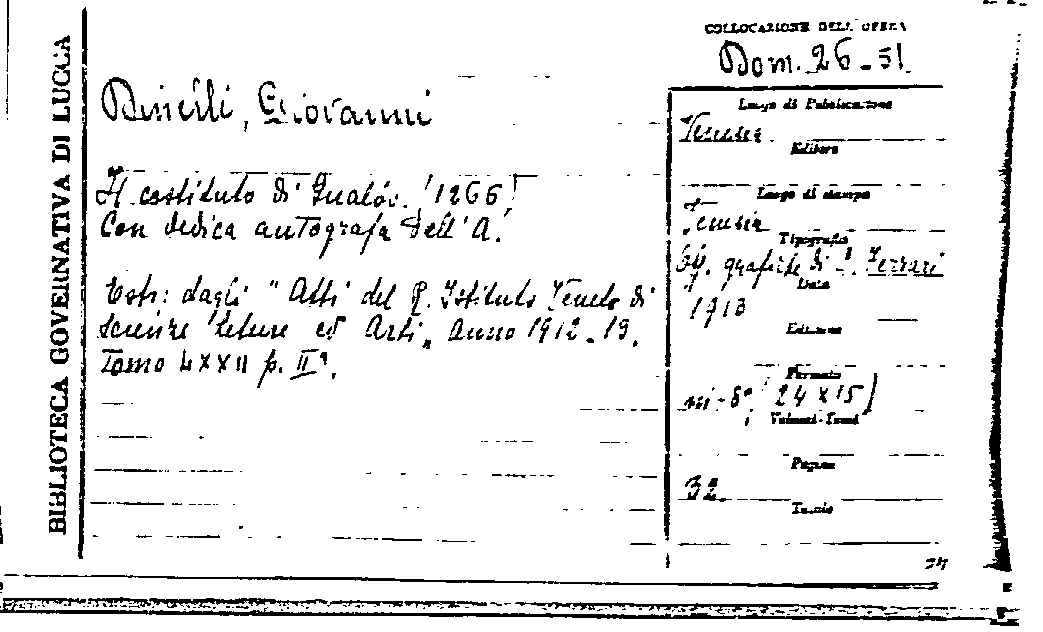 BIBLIOTECA GOVERNATIVA DI LUCCA
COLLOCAZIONE DELL'OPERA
Dom. 26-51
Giovanni
Il costituto di (1266)
Con dedica autografa dell'A.
Estr: dagli "Atti del R. Istituto Veneto di
Scienze Lettere ed Arti" Anno 1912-13.
Tomo LXXII p. IIa.
Luogo di Pubblicazione
Venezia
Editore
Luogo di stampa
Venezia
Tipografia
grafiche di Ferrari
Data
1913
Edizione
Formato
in-8° (24 x 15)
Volumi-Tomi
Pagine
32
Tavole